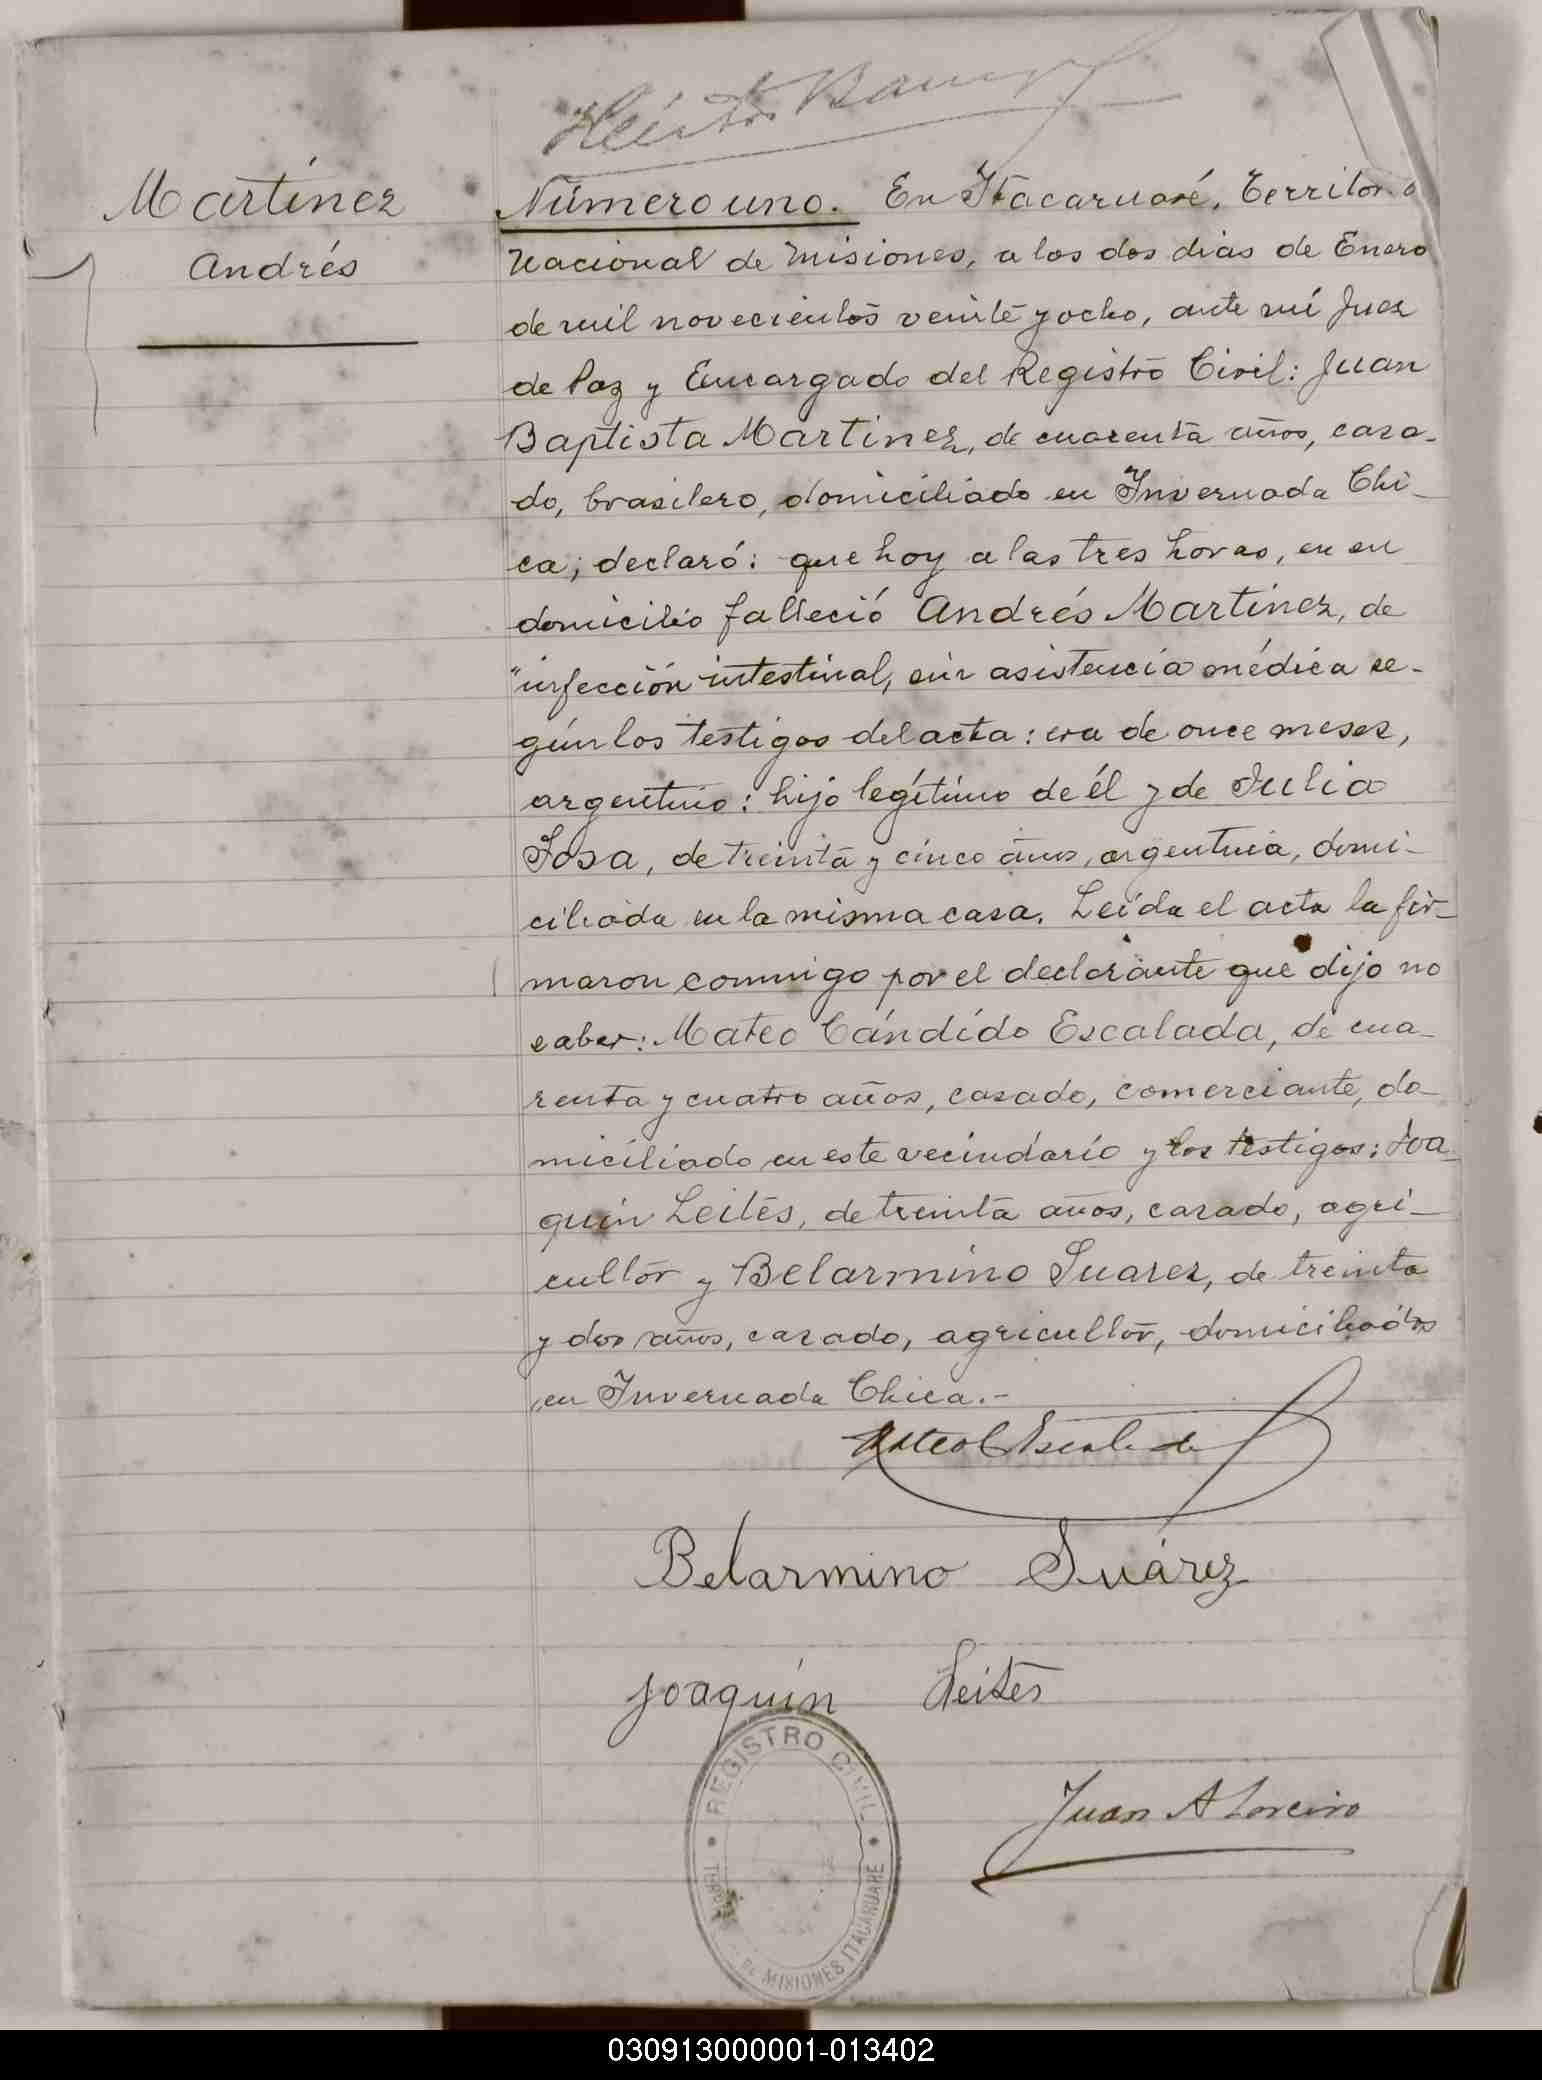 Martinez
Andrés
Número uno. En Itacaruaré, Territorio
Nacional de Misiones, a los dos dias de Enero
de mil novecientos veinte y ocho, ante mí Juez
de Paz y Encargado del Registro Civil: Juan
Baptista Martinez, de cuarenta años, casa-
do, brasilero, domiciliado en Invernada Chi-
ca; declaró: que hoy a las tres horas, en su
domicilio falleció Andrés Martinez, de
"infección intestinal, sin asistencia médica se-
gún los testigos del acta: era de once meses,
argentino: hijo legítimo de él y de Julia
Sosa, de treinta y cinco años, argentina, domi-
ciliada en la misma casa. Leida el acta la fir-
maron conmigo por el declarante que dijo no
saber: Mateo Cándido Escalada, de cua-
renta y cuatro años, casado, comerciante, do-
miciliado en este vecindario y los testigos: Joa-
quin Leites, de treinta años, casado, agri-
cultor y Belarmino Suarez, de treinta
y dos años, casado, agricultor, domiciliados
en Invernada Chica.-
Mateo C Escalada
Belarmino Suárez
Joaquín Leites
Juan A Loreiro
REGISTRO CIVIL
DE MISIONES ITACARUARE
030913000001-013402